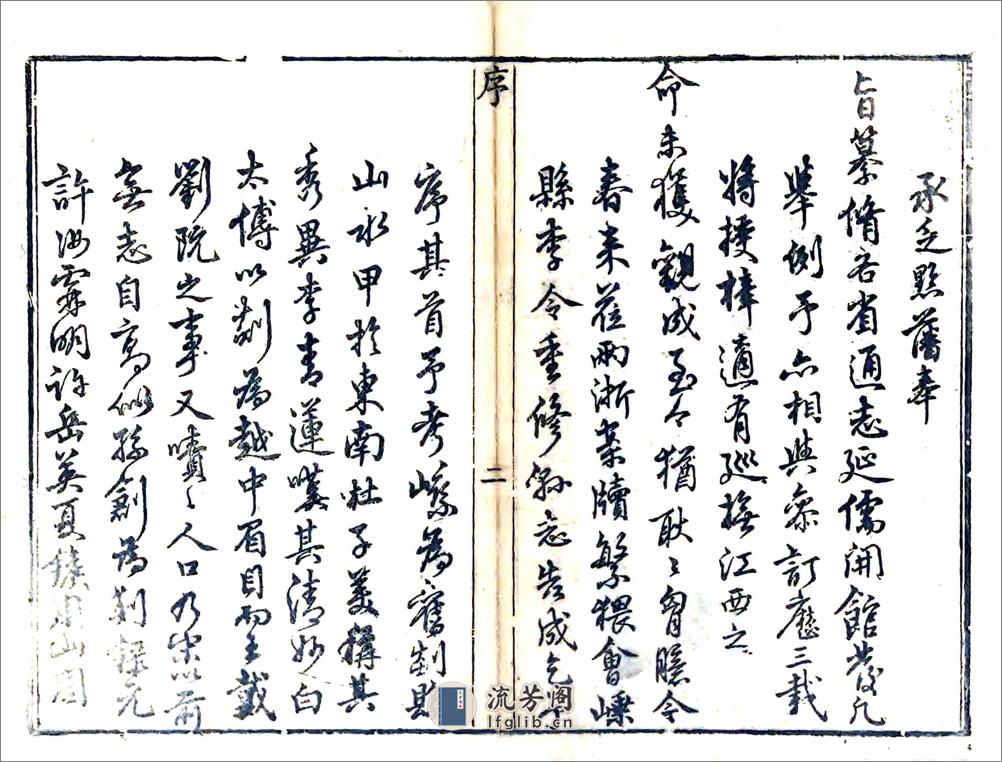 承乏黔藩奉
旨纂脩各省通志延儒開館發凡
舉例予亦相與參訂歷三載
將授梓適有巡撫江西之
命未獲觀成至今猶耿〻胷臆今
春来蒞兩浙案牘繁猥會嵊
縣李令重修縣志告成乞
序
二
序其首予考嵊為舊剡縣
山水甲於東南杜子美稱其
秀異李青蓮嘆其清妙白
太傅以剡為越中眉目而王戴
劉阮之事又嘖〻人口乃宋以前
無志自高似孫創為剡録元
許汝霖明許岳英夏鍭周山周
流芳阁
lfglib.cn